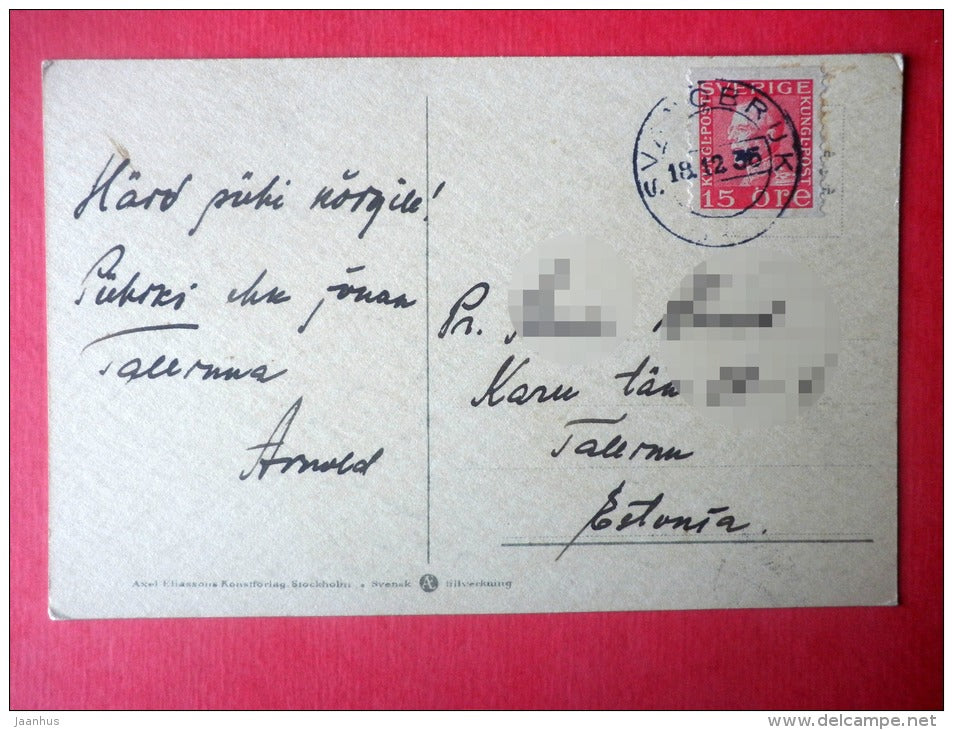 Härd pühi nõrgile!
Pühiks ehk jõnan
Tallinna
Arnold
Pr.
Karu tän
Tallinn
Estonia.
SVERIGE
KUNGL·POST
KUNGL·POST
15 ÖRE
18.12 35
Axel Eliassons Konstförlag, Stockholm . Svensk A tillverkning
Jaanhus
www.delcampe.net